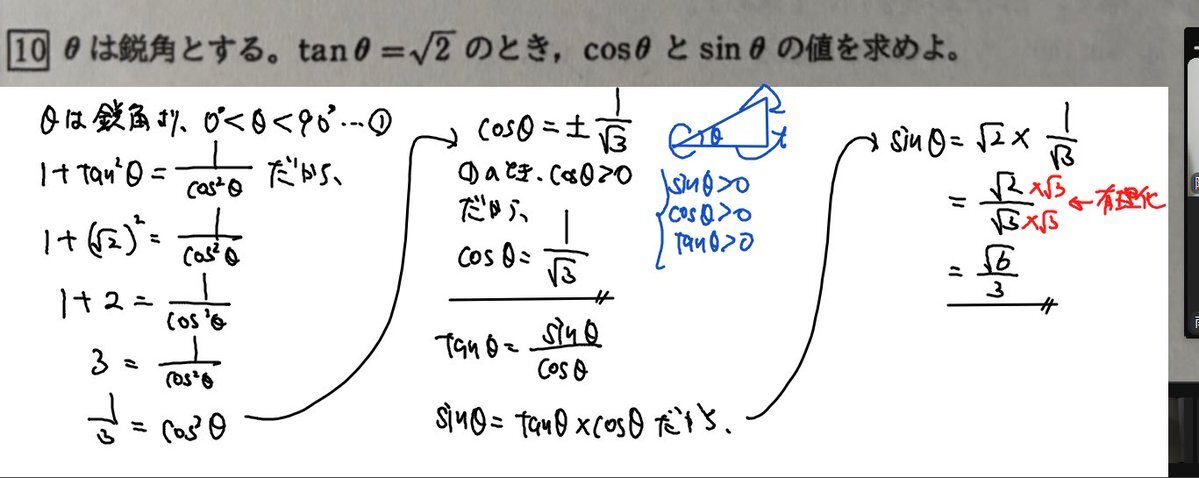 10 θは鋭角とする。tanθ=√2 のとき，cosθ と sinθ の値を求めよ。
θは鋭角より、0°<θ<90°…①
1+tan²θ = 1/cos²θ だから、
1+(√2)² = 1/cos²θ
1+2 = 1/cos²θ
3 = 1/cos²θ
1/3 = cos²θ
cosθ = ± 1/√3
①のとき、cosθ>0
だから、
cosθ = 1/√3
tanθ = sinθ/cosθ
sinθ = tanθ×cosθ だから、
θ
sinθ>0
cosθ>0
tanθ>0
sinθ = √2 × 1/√3
= √2×√3/√3×√3 ← 有理化
= √6/3